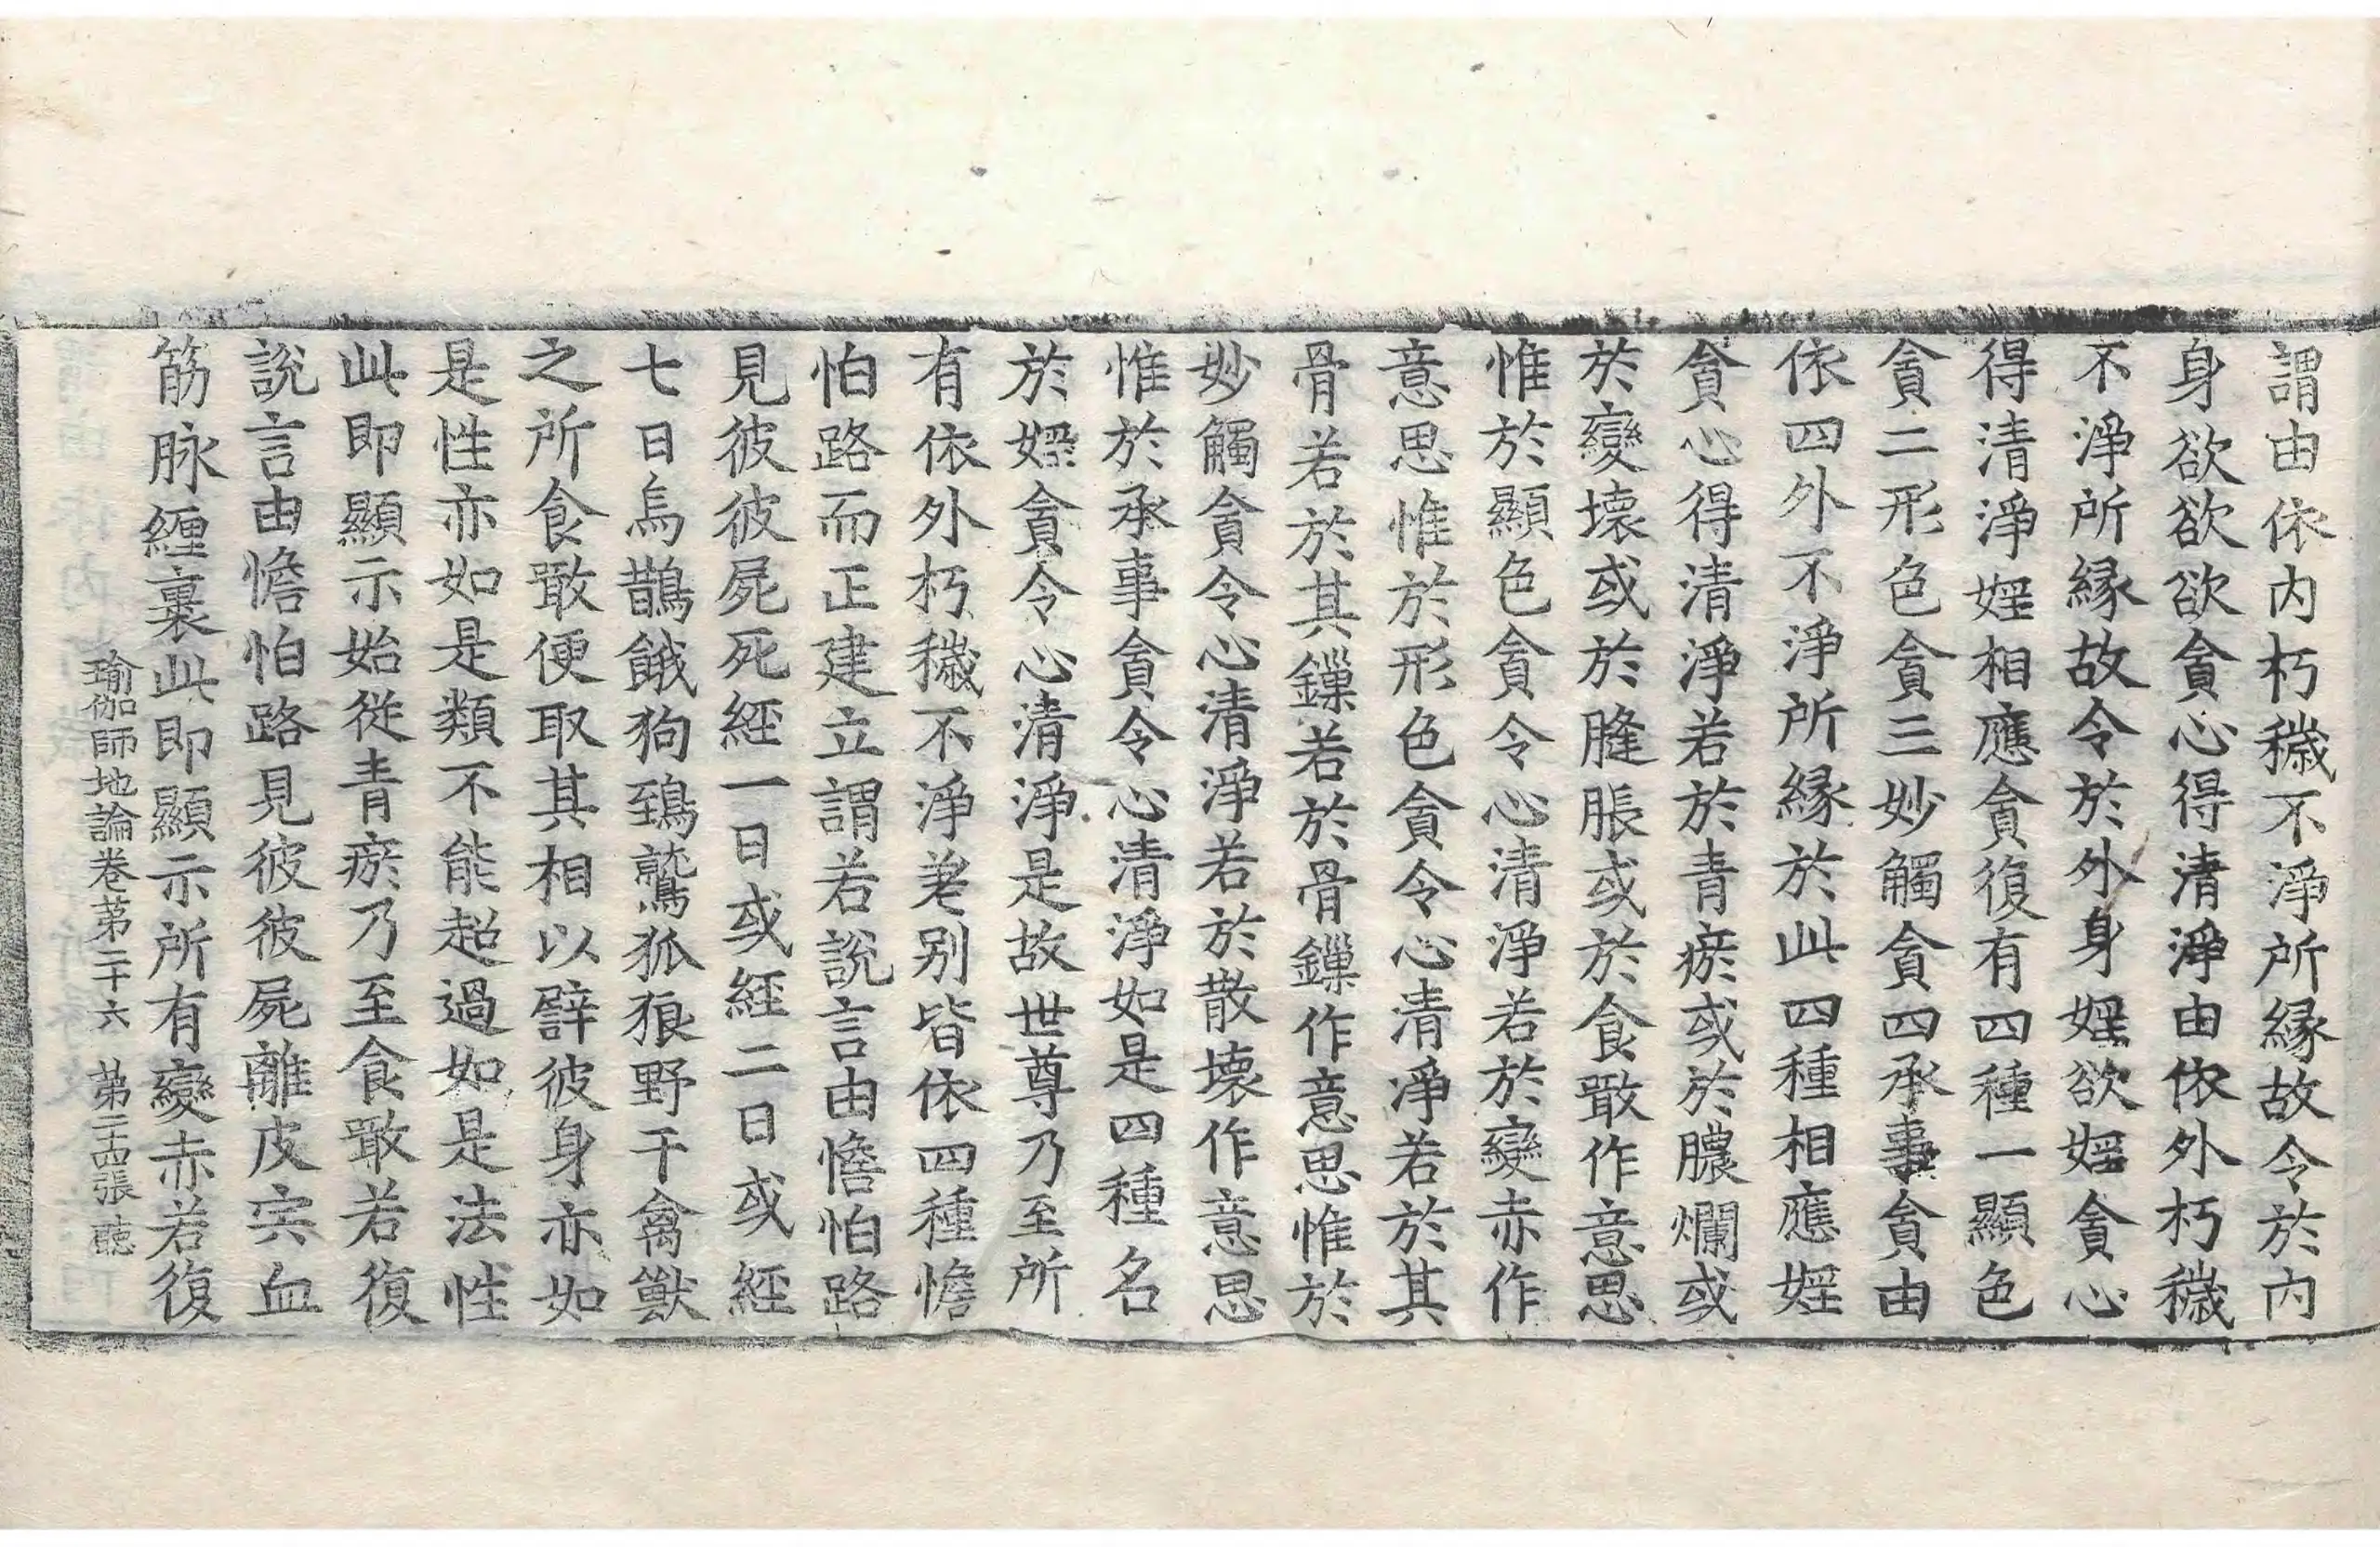 謂由依内朽穢不淨所縁故令於内
身欲欲欲貪心得清淨由依外朽穢
不淨所縁故令於外身婬欲婬貪心
得清淨婬相應貪復有四種一顯色
貪二形色貪三妙觸貪四承事貪由
依四外不淨所縁於此四種相應婬
貪心得清淨若於青瘀或於膿爛或
於變壞或於膖脹或於食噉作意思
惟於顯色貪令心清淨若於變赤作
意思惟於形色貪令心清淨若於其
骨若於其鏁若於骨鏁作意思惟於
妙觸貪令心清淨若於散壞作意思
惟於承事貪令心清淨如是四種名
於婬貪令心清淨是故世尊乃至所
有依外朽穢不淨差别皆依四種憺
怕路而正建立謂若說言由憺怕路
見彼彼屍死經一日或經二日或經
七日烏鵲餓狗鵄鷲狐狼野干禽獸
之所食噉便取其相以譬彼身亦如
是性亦如是類不能超過如是法性
此即顯示始從青瘀乃至食噉若復
說言由憺怕路見彼彼屍離皮宍血
筋脉纏裹此即顯示所有變赤若復
瑜伽師地論卷第二十六 第二十四張 聽